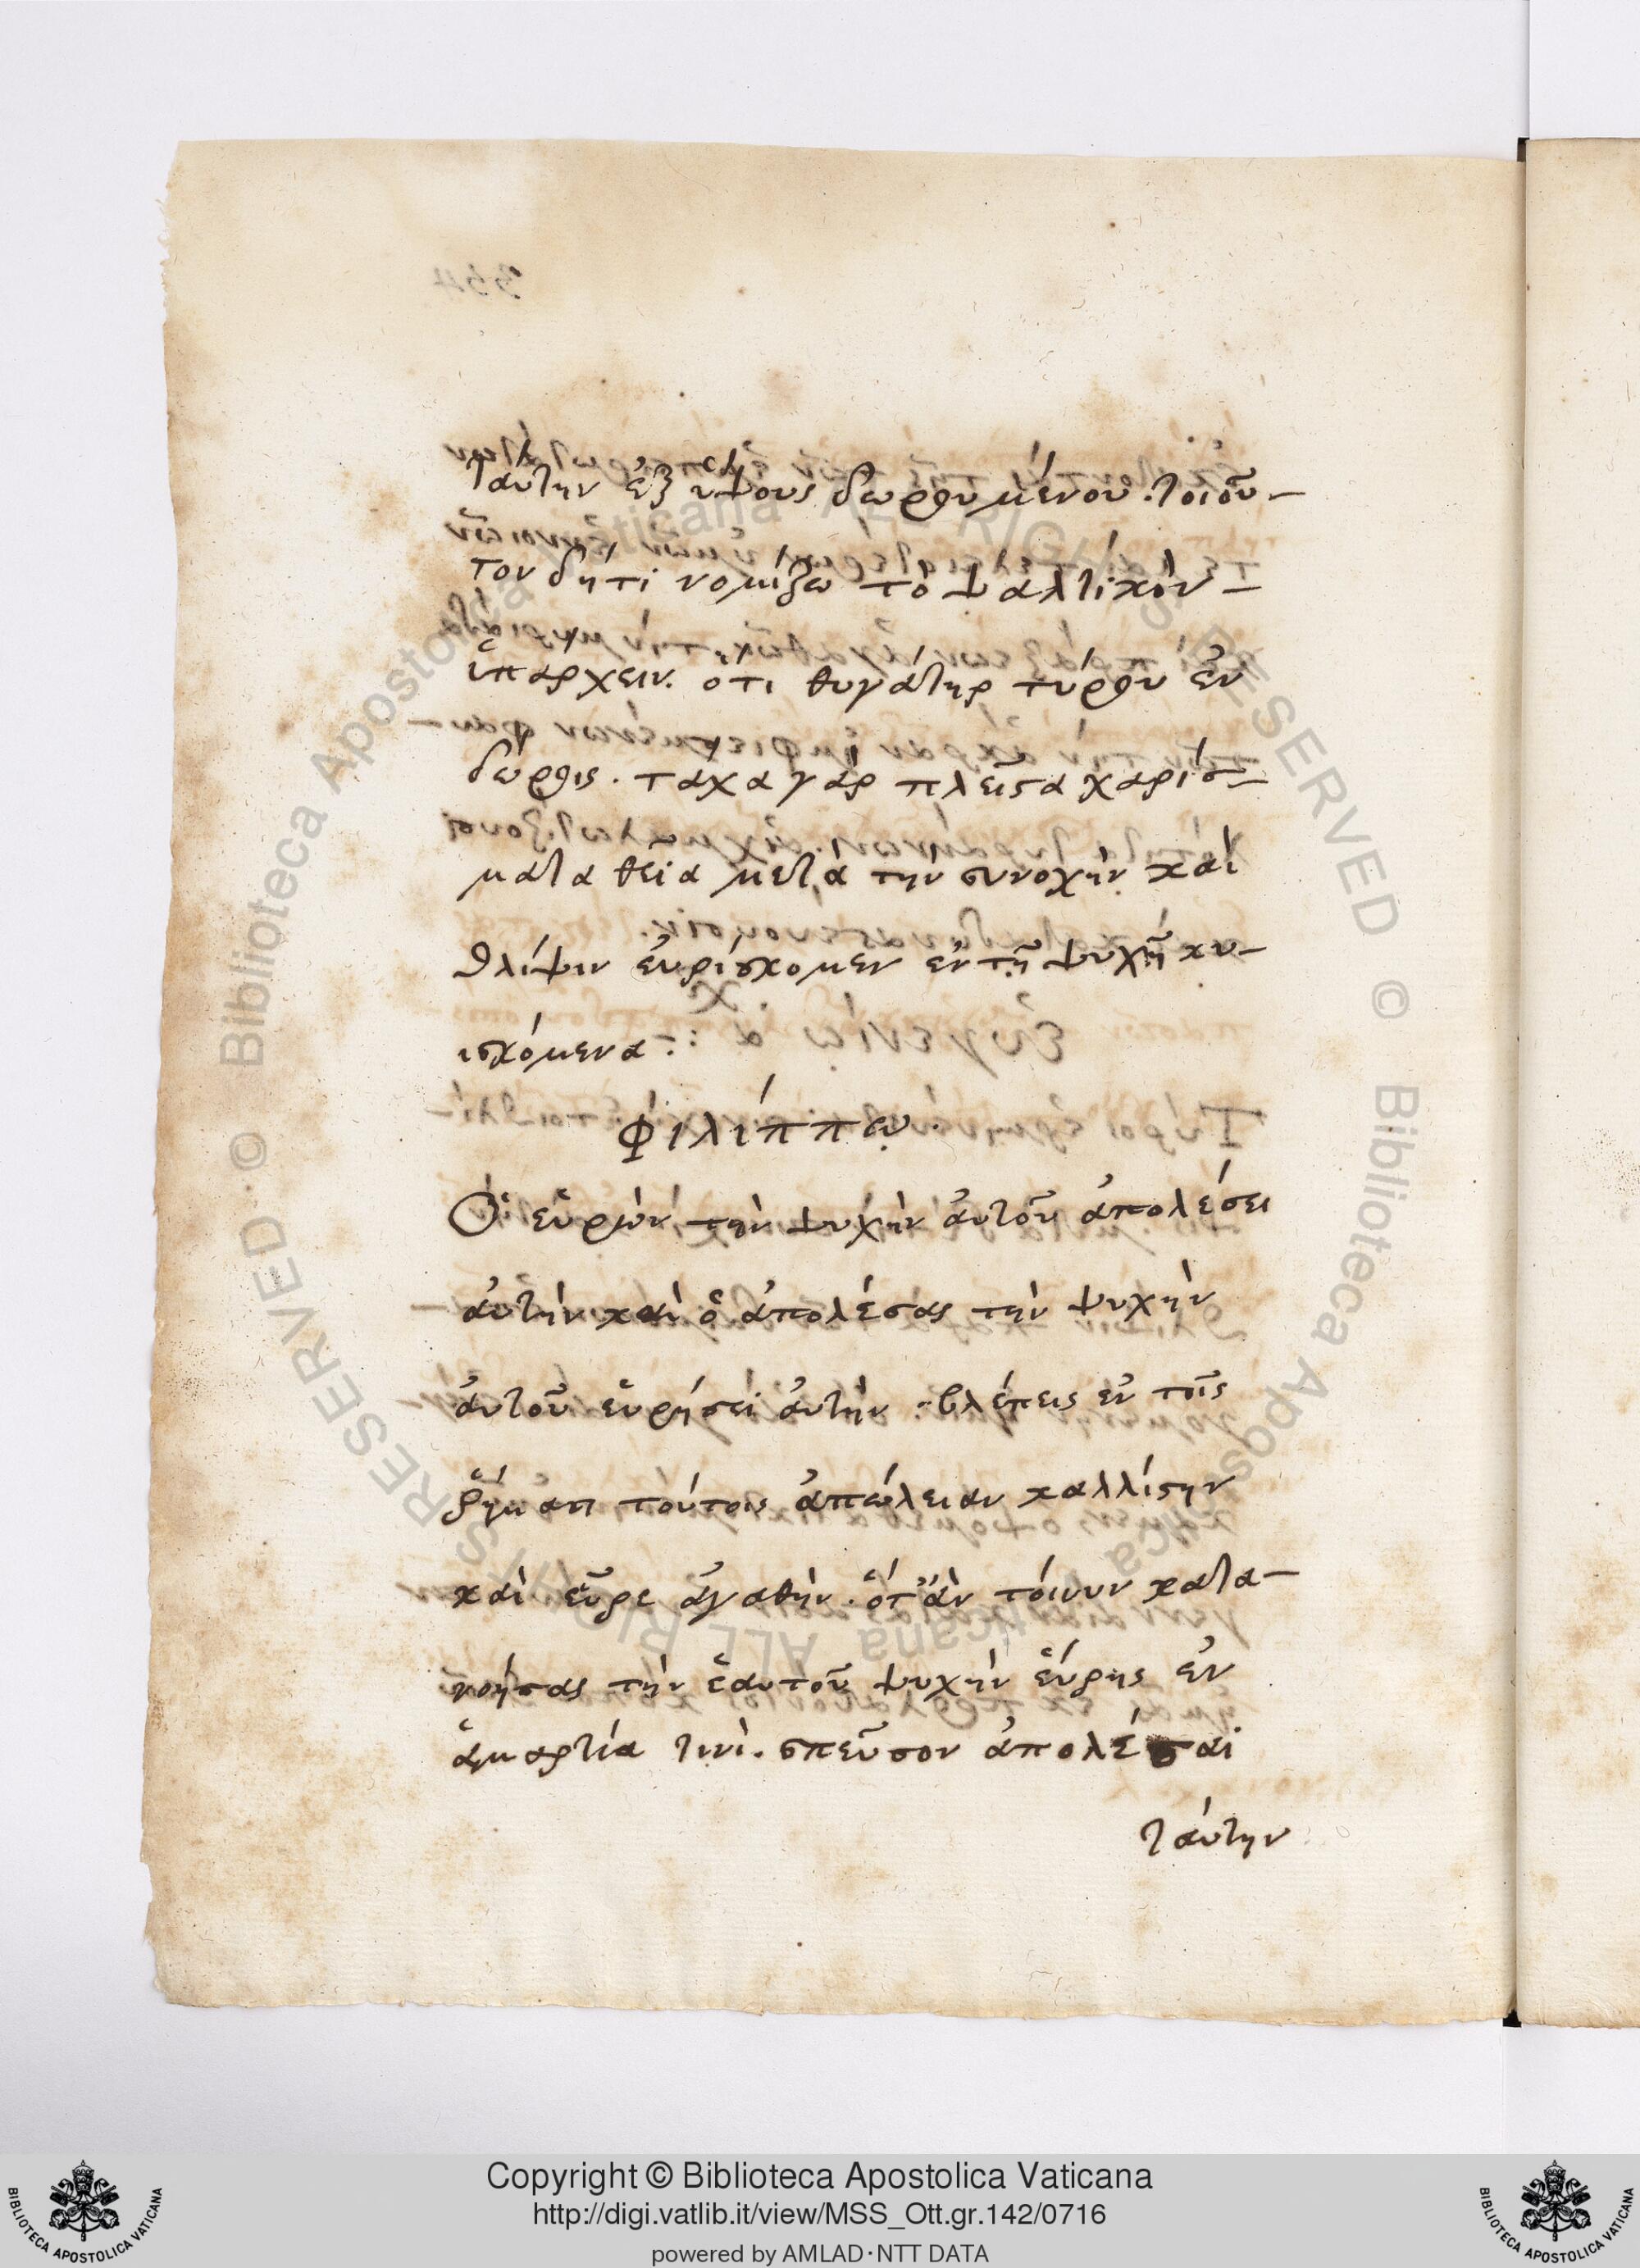 ταύτην ἐξ ὕψους δωρουμένου. τοιοῦ-
τον δή τι νομίζω τὸ ψαλτικὸν -
ὑπάρχειν. ὅτι θυγάτηρ τύρου ἐν
δώροις. τάχα γὰρ πλεῖστα χαρίσ-
ματα θεῖα μετὰ τὴν συνοχὴν καὶ
θλίψιν ἑυρίσκομεν ἐν τῇ ψυχῇ κυ-
ισκόμενα:
φιλίππῳ.
Ὁ εὑρὼν τὴν ψυχὴν ἀυτοῦ ἀπολέσει
ἀυτὴν καὶ ὁ ἀπολέσας τὴν ψυχὴν
ἀυτοῦ εὑρήσει ἀυτὴν. βλέπεις ἐν τοῖς
ῥήμασι τούτοις ἀπώλειαν καλλίστην
καὶ εὗρε ἀγαθὴν. ὅτ' ἂν τόινυν κατα-
νοήσας τὴν ἑαυτοῦ ψυχὴν ἕυρῃς ἐν
ἁμαρτία τινὶ. σπεῦσον ἀπολέσαι
ταύτην
Copyright © Biblioteca Apostolica Vaticana
http://digi.vatlib.it/view/MSS_Ott.gr.142/0716
powered by AMLAD·NTT DATA
BIBLIOTECA APOSTOLICA VATICANA
BIBLIOTECA APOSTOLICA VATICANA
© Biblioteca Apostolica Vaticana ALL RIGHTS RESERVED
© Biblioteca Apostolica Vaticana ALL RIGHTS RESERVED